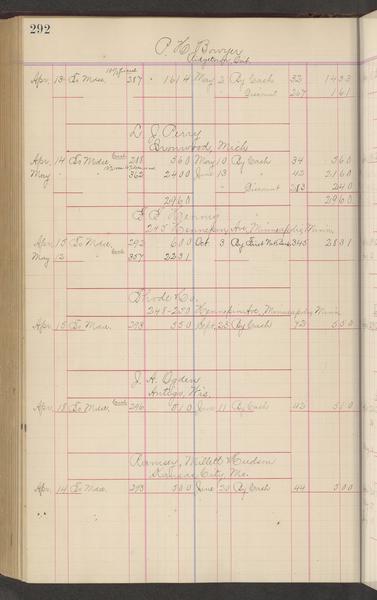 292
P. H. Bowyer
Ridgetown, Ont.
Apr. 13 To Mdse. 287 1614 May 2 By Cash 32 1453
" Discount 267 161
L. J. Perry
Ironwood, Mich
Apr. 14 To Mdse. Cash 288 560 May 10 By Cash 34 560
May " " 362 2400 June 13 " 42 2160
" Discount 283 240
2960 2960
245 Hennepin Ave, Minneapolis, Minn
Apr. 15 To Mdse. 292 600 Oct 3 By 345 2831
May 12 " Cash 357 2231
Rhode Co.
248-250 Hennepin Ave, Minneapolis, Minn
Apr. 15 To Mdse. 293 550 Sept. 23 By Cash 72 550
J. A. Ogden
Antigo, Wis.
Apr. 18 To Mdse. Cash 296 510 June 11 By Cash 42 510
Ramsey, Millett & Hudson
Kansas City, Mo.
Apr. 14 To Mdse. 293 500 June 20 By Cash 44 500